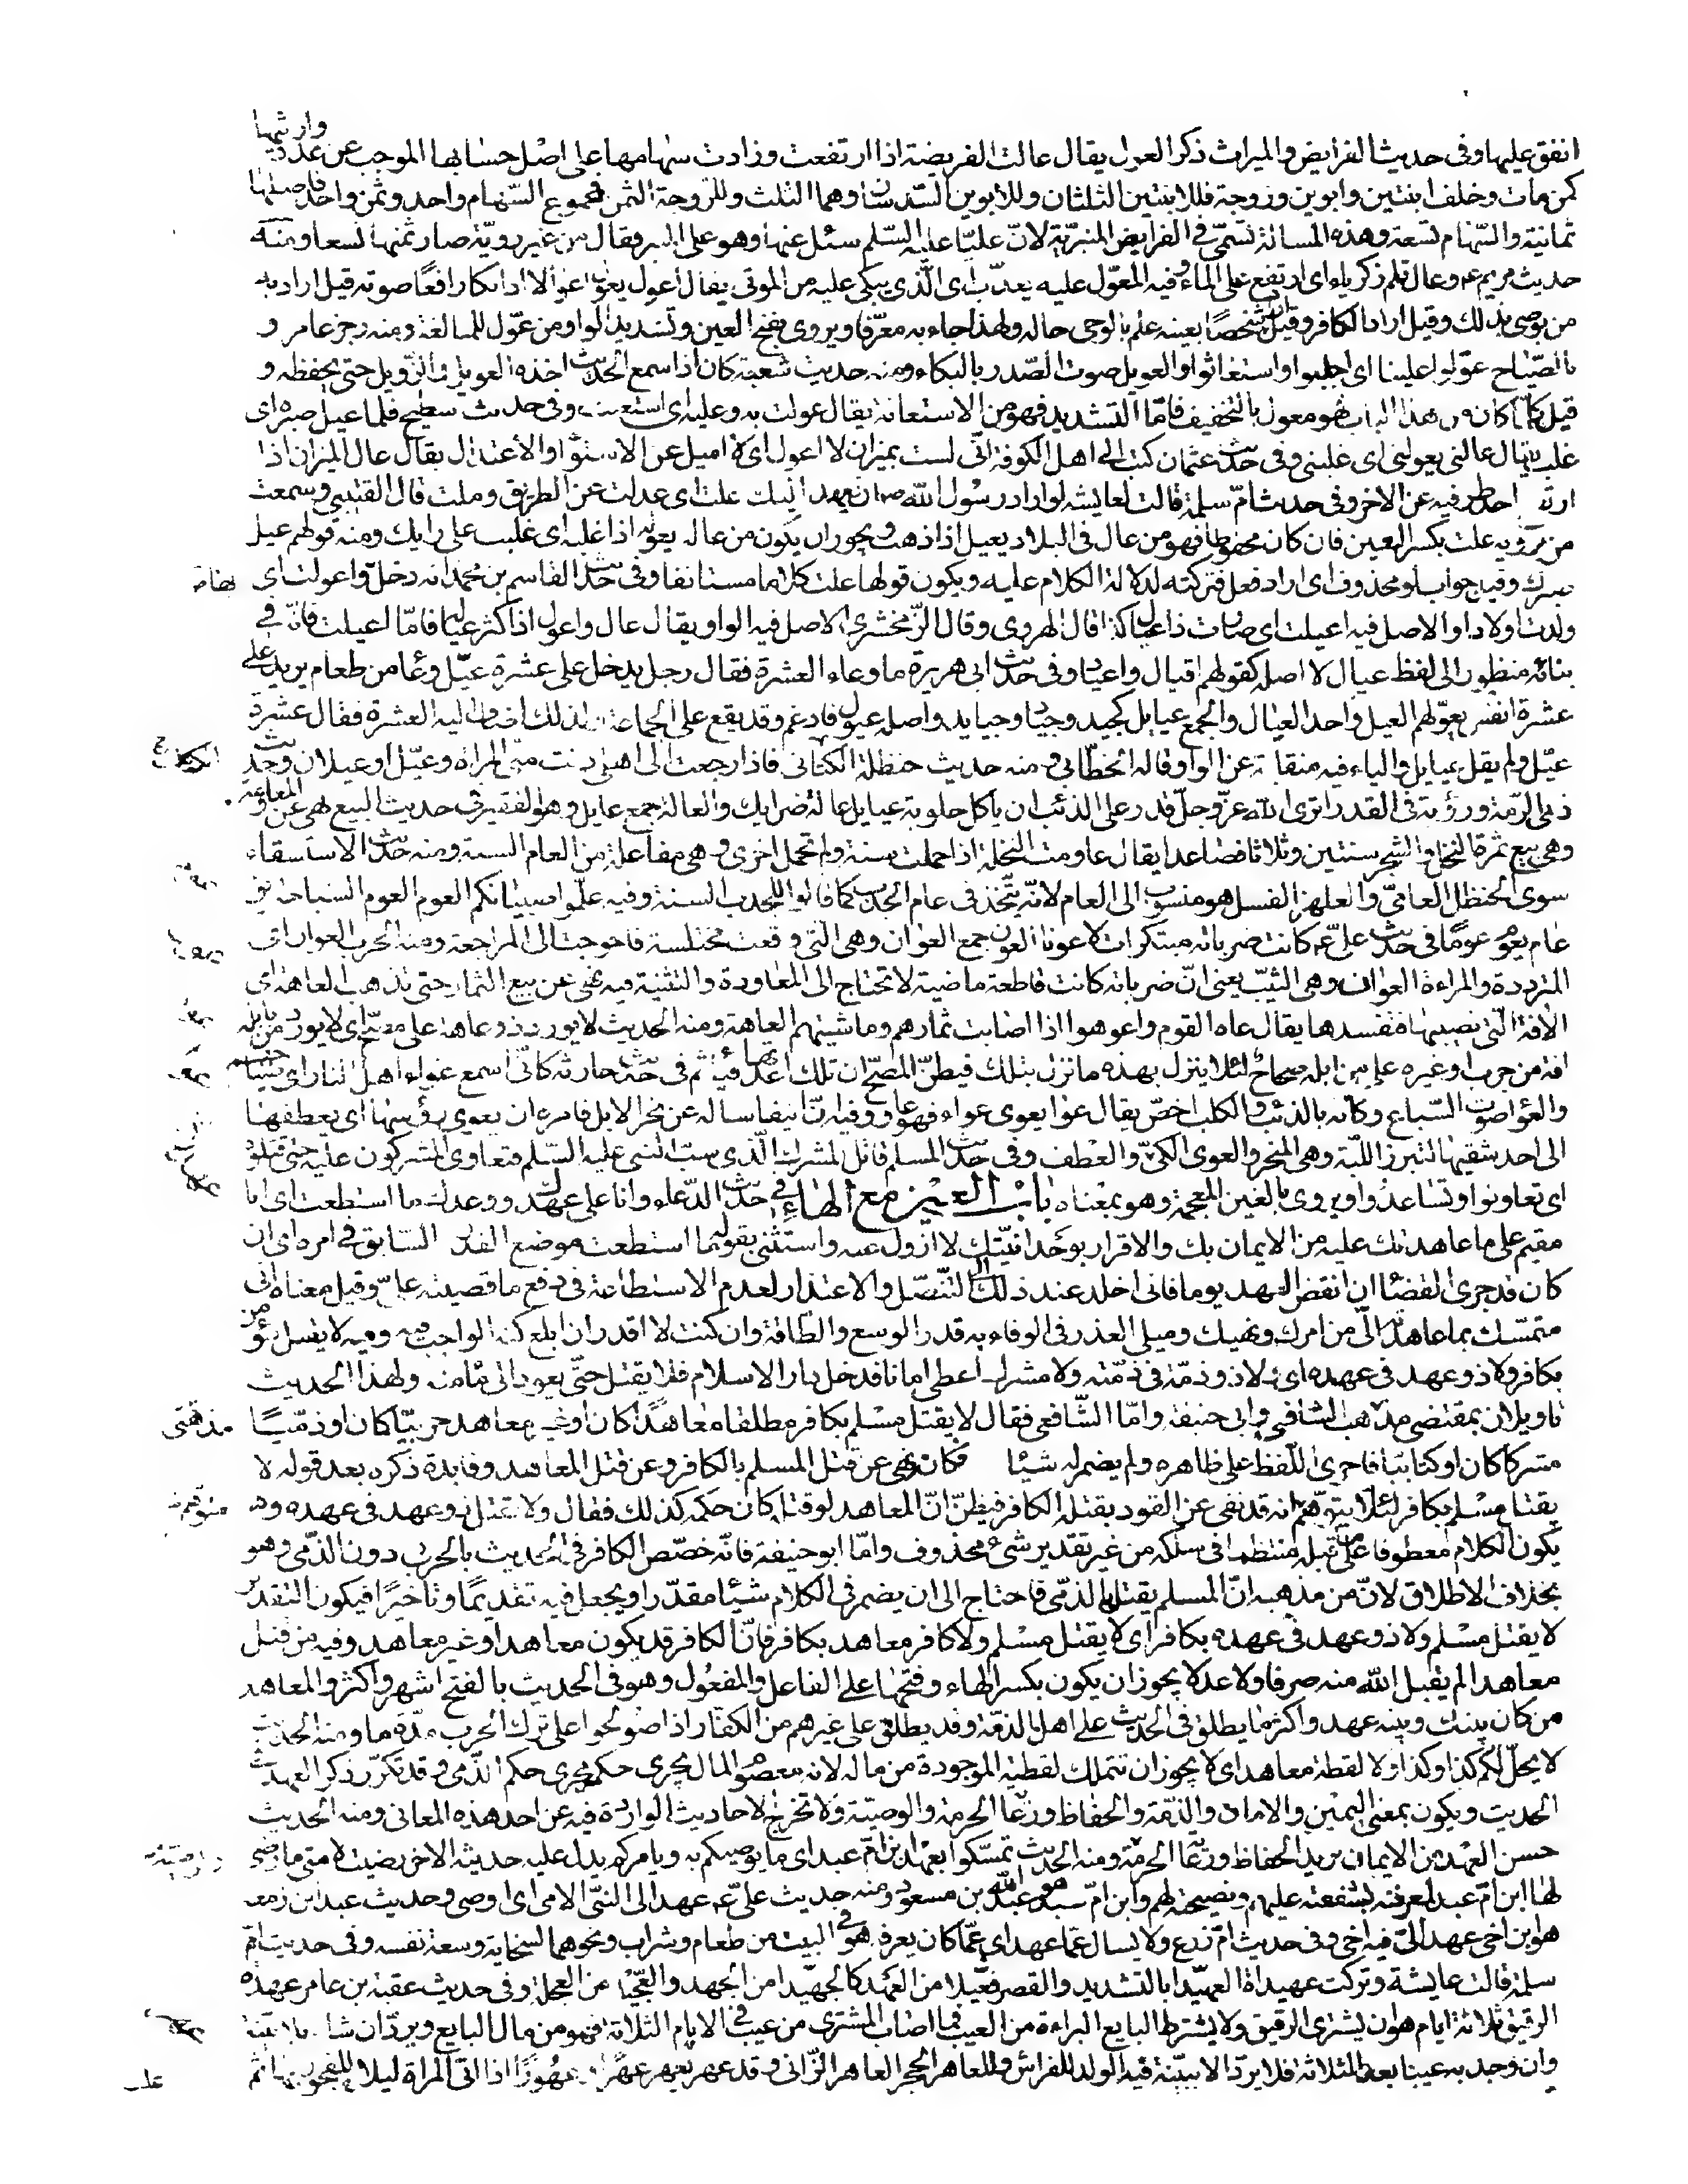 وارثيها
انفق عليها وفى حديث الفرايض والميراث ذكر العول يقال عالت الفريضة اذا ارتفعت وزادت سهامها على اصل حسابها الموجب عن عدد
كمن مات وخلف ابنتين وابوين وزوجة فللابنتين الثلثان وللابوين السدسان وهما الثلث وللزوجة الثمن فمجموع السهام واحد وثمن واحد فاصلها
ثمانية والسهام تسعة وهذه المسالة تسمى فى الفرايض المنبرية لان عليا عليه السلم سئل عنها وهو على المنبر فقال من غير روية صار ثمنها تسعا ومنه
حديث مريم عم وعال قلم زكريا اى ارتفع على الماء وفيه المعول عليه يعذب اى الذى يبكى عليه من الموتى يقال اعول يعول اعوالا اذا بكا رافعا صوته قيل اراد به
من يوصى بذلك وقيل اراد الكافر وقيل شخصا بعينه علم بالوحى حاله ولهذا جاء به معرفا ويروى بفتح العين وتشديد الواو من عول للمبالغة ومنه رجز عامر و
بالصياح عولوا علينا اى اجلبوا واستغاثوا والعويل صوت الصدر بالبكاء ومنه حديث شعبة كان اذا سمع الحديث اخذه العويل والزويل حتى يحفظه و
قيل كلما كان من هذا الباب فهو معول بالتخفيف فاما التشديد فهو من الاستعانة يقال عولت به وعليه اى استعنت وفى حديث سطيح فلما عيل صبره اى
غلب يقال عالنى يعولنى اى غلبنى وفى حديث عثمان كتب الى اهل الكوفة انى لست بميزان لا اعول اى لا اميل عن الاستواء والاعتدال يقال عال الميزان اذا
ارتفع احد طرفيه عن الاخر وفى حديث ام سلمة قالت لعايشة لو اراد رسول الله ان يعهد اليك علت اى عدلت عن الطريق وملت قال القتيبى وسمعت
من يرويه علت بكسر العين فان كان محفوظا فهو من عال فى البلاد يعيل اذا ذهب ويجوز ان يكون من عاله يعوله اذا غلبه اى غلبت على رايك ومنه قولهم عيل
صبرك وفيه جواب لو محذوف اى اراد فعل فتركته لدلالة الكلام عليه ويكون قولها علت كلاما مستانفا وفى حديث القاسم بن محمد انه دخل واعولت اى
ولدت اولادا والاصل فيه اعيلت اى صارت ذا عيال كذا قال الهروى وقال الزمخشرى الاصل فيه الواو يقال عال واعول اذا كثر عياله فاما اعيلت فانه فى
بنائه منظور الى لفظ عيال لا اصله كقولهم اقيال واعياد وفى حديث ابى هريرة ما وعاء العشرة فقال رجل يدخل على عشرة عيل وعا من طعام يريد على
عشرة انفس يعولهم العيل واحد العيال والجمع عيايل كجيد وجياد وجيايد واصله عيول فادغم وقد يقع على الجماعة لذلك اضاف اليه العشرة فقال عشرة
عيل ولم يقل عيايل والياء فيه منقلبة عن الواو قاله الخطابى ومنه حديث حنظلة الكتانى فاذا رجعت الى اهلى دنت منى المراة وعيل او عيلان وحديث
ذى الرمة ورؤبة فى القدر اترى الله عز وجل قدر على الذئب ان ياكل حلوبة عيايل عالة ضرايك والعالة جمع عايل وهو الفقير وفى حديث البيع نهى عن المعاومة
وهى بيع ثمرة النخل والشجر سنتين وثلاثا فصاعدا يقال عاومت النخلة اذا حملت سنة ولم تحمل اخرى وهى مفاعلة من العام السنة ومنه حديث الاستسقاء
سوى الحنظل العامى والعلهز الفسل هو منسوب الى العام لانه يتخذ فى عام الجدب كما قالوا للجدب السنة وفيه علموا صبيانكم العوم العوم السباحة يق
عام يعوم عوما فى حديث على عم كانت ضرباته مبتكرات لا عونا العون جمع العوان وهى التى وقعت مختلسة فاحوجت الى المراجعة ومنه الحرب العوان اى
المترددة والمراة العوان وهى الثيب يعنى ان ضرباته كانت قاطعة ماضية لا تحتاج الى المعاودة والتثنية فيه نهى عن بيع الثمار حتى تذهب العاهة اى
الافة التى تصيبها فتفسدها يقال عاه القوم واعوهوا اذا اصابت ثمارهم وماشيتهم العاهة ومنه الحديث لا يوردن ذو عاهة على مصح اى لا يورد من بابله
افة من جرب او غيره على من ابله صحاح لئلا ينزل بهذه ما نزل بتلك فيظن المصح ان تلك اعدتها فياثم فى حديث حارثة كانى اسمع عواء اهل النار اى صياحهم
والعواء صوت السباع وكانه بالذئب والكلب اخص يقال عوا يعوى عواء فهو عاو وفيه ان انيفا ساله عن نحر الابل فامره ان يعوى رؤسها اى يعطفها
الى احد شقيها لتبرز اللبة وهى المنحر والعوى اللى والعطف وفى حديث المسلم قاتل المشرك الذى سب النبى عليه السلم فتعاوى المشركون عليه حتى قتلوه
اى تعاونوا وتساعدوا ويروى بالغين المعجمة وهو بمعناه باب العين مع الهاء فى حديث الدعاء وانا على عهدك ووعدك ما استطعت اى انا
مقيم على ما عاهدتك عليه من الايمان بك والاقرار بوحدانيتك لا ازول عنه واستثنى بقوله ما استطعت موضع القدر السابق فى امره اى ان
كان قد جرى القضا ان انقض العهد يوما فانى اخلد عند ذلك الى التنصل والاعتذار لعدم الاستطاعة فى دفع ما قضيته على وقيل معناه انى
متمسك بما عاهدته الى من امرك ونهيك ومبلى العذر فى الوفاء به قدر الوسع والطاقة وان كنت لا اقدر ان ابلغ كنه الواجب فيه وفيه لا يقتل مؤمن
بكافر ولا ذو عهد فى عهده اى ولا ذو ذمة فى ذمته ولا مشرك اعطى امانا فدخل دار الاسلام فلا يقتل حتى يعود الى مامنه ولهذا الحديث
تاويلان بمقتضى مذهب الشافعى وابى حنيفة واما الشافعى فقال لا يقتل مسلم بكافر مطلقا معاهدا كان او غير معاهد حربيا كان او ذميا
مشركا كان او كتابيا فاجرى اللفظ على ظاهره ولم يضمر له شيئا فكانه نهى عن قتل المسلم بالكافر وعن قتل المعاهد وفايدة ذكره بعد قوله لا
يقتل مسلم بكافر لئلا يتوهم انه قد نفى عن القود بقتله الكافر فيظن ان المعاهد لو قتله كان حكمه كذلك فقال ولا يقتل ذو عهد فى عهده و
يكون الكلام معطوفا على ما قبله منتظما فى سلكه من غير تقدير شئ محذوف واما ابو حنيفة فانه خصص الكافر فى الحديث بالحربى دون الذمى وهو
بخلاف الاطلاق لان من مذهبه ان المسلم يقتل بالذمى فاحتاج الى ان يضمر فى الكلام شيئا مقدرا ويجعل فيه تقديما وتاخيرا فيكون التقدير
لا يقتل مسلم ولا ذو عهد فى عهده بكافر اى لا يقتل مسلم ولا كافر معاهد بكافر فان الكافر قد يكون معاهدا وغير معاهد وفيه من قتل
معاهدا لم يقبل الله منه صرفا ولا عدلا يجوز ان يكون بكسر الهاء وفتحها على الفاعل والمفعول وهو فى الحديث بالفتح اشهر واكثر والمعاهد
من كان بينك وبينه عهد واكثر ما يطلق فى الحديث على اهل الذمة وقد يطلق على غيرهم من الكفار اذا صولحوا على ترك الحرب مدة ما ومنه الحديث
لا يحل لكم كذا وكذا ولا لقطة معاهد اى لا يجوز ان تتملك لقطته الموجودة من ماله لانه معصوم المال يجرى حكمه مجرى حكم الذمى وقد تكرر ذكر العهد فى
الحديث ويكون بمعنى اليمين والامان والذمة والحفاظ ورعاية الحرمة والوصية ولا تخرج الاحاديث الواردة فيه عن احد هذه المعانى ومنه الحديث
حسن العهد من الايمان يريد الحفاظ ورعاية الحرمة ومنه الحديث تمسكوا بعهد ابن ام عبد اى ما يوصيكم به ويامركم يدل عليه حديثه الاخر رضيت لامتى ما رضى
لها ابن ام عبد لمعرفته بشفقته عليهم ونصيحته لهم وابن ام عبد هو عبد الله بن مسعود ومنه حديث على عم عهد الى النبى الامى اى اوصى وحديث عبد بن زمعة
هو ابن اخى عهد الى فيه اخى وفى حديث ام زرع ولا يسال عما عهد اى عما كان يعرفه فى البيت من طعام وشراب ونحوهما لسخايه وسعة نفسه وفى حديث ام
سلمة قالت عايشة وتركت عهيداه العهيدا بالتشديد والقصر فعيلا من العهد كالجهيدا من الجهد والعجيلا من العجلة وفى حديث عقبة بن عامر عهدة
الرقيق ثلاثة ايام هو ان يشترى الرقيق ولا يشترط البايع البراءة من العيب فما اصاب المشترى من عيب فى الايام الثلاثة فهو من مال البايع ويرد ان شاء بلا بينة
وان وجد به عيبا بعد الثلاثة فلا يرد الا ببينة فيه الولد للفراش وللعاهر الحجر العاهر الزانى وقد عهر يعهر عهرا وعهورا اذا اتى المراة ليلا للفجور بها ثم